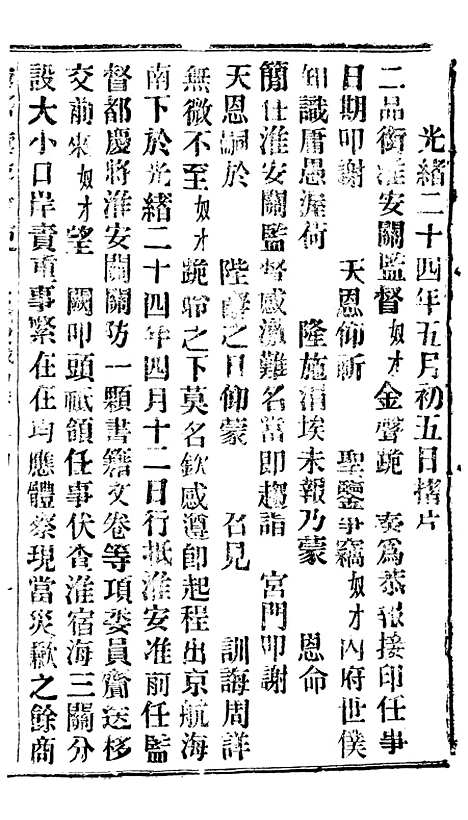 光緒二十四年五月初五日摺片
二品銜淮安關監督奴才金聲跪 奏爲恭報接印任事
日期叩謝 天恩仰祈 聖鑒事竊奴才內府世僕
知識庸愚渥荷 隆施涓埃未報乃蒙 恩命
簡任淮安關監督感激難名當即趨詣 宮門叩謝
天恩嗣於 陛辭之日仰蒙 召見 訓誨周詳
無微不至奴才跪聆之下莫名欽感遵卽起程出京航海
南下於光緒二十四年四月十二日行抵淮安准前任監
督都慶將淮安關關防一顆書籍文卷等項委員齎送移
交前來奴才望 闕叩頭祗領任事伏查淮宿海三關分
設大小口岸責重事繁在在均應體察現當災歉之餘商